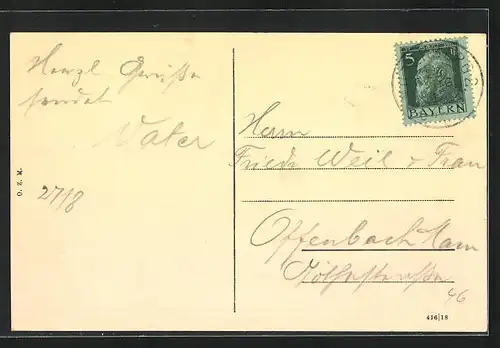 Herzl. Grüße
sendet
Vater
27/8
O. Z. M.
5
BAYERN
Herrn
Friedr Weil & Frau
Offenbach Main
46
416|18